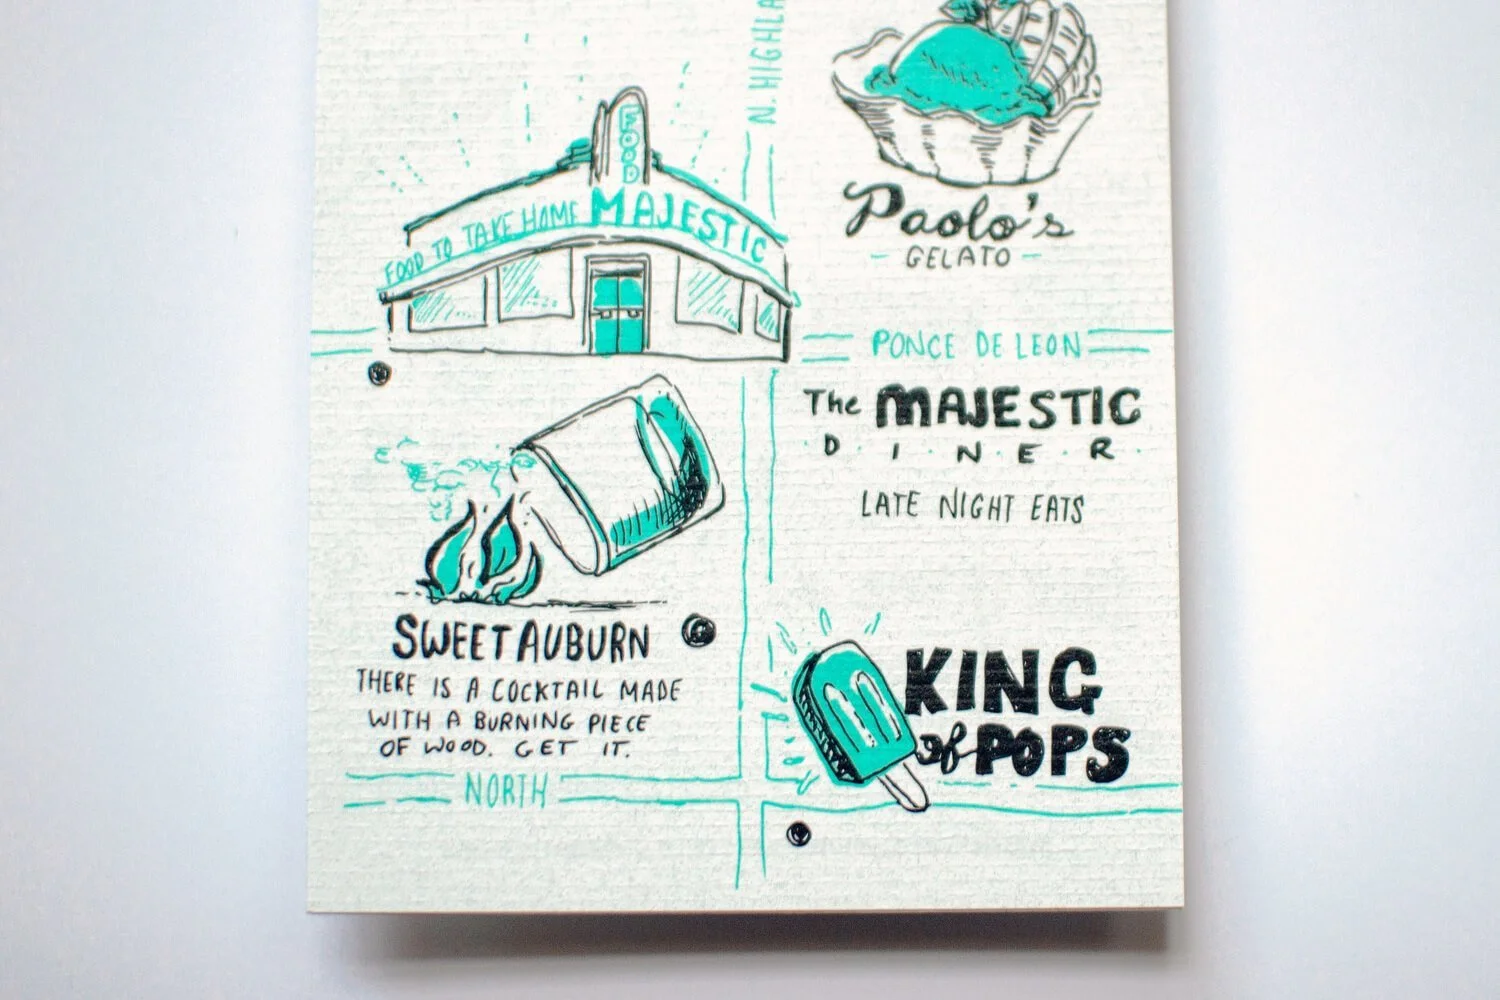 N. HIGHLA
FOOD
FOOD TO TAKE HOME MAJESTIC
Paolo's
- GELATO -
PONCE DE LEON
The MAJESTIC
D · I · N · E · R
LATE NIGHT EATS
SWEET AUBURN
THERE IS A COCKTAIL MADE
WITH A BURNING PIECE
OF WOOD. GET IT.
KING
of POPS
NORTH